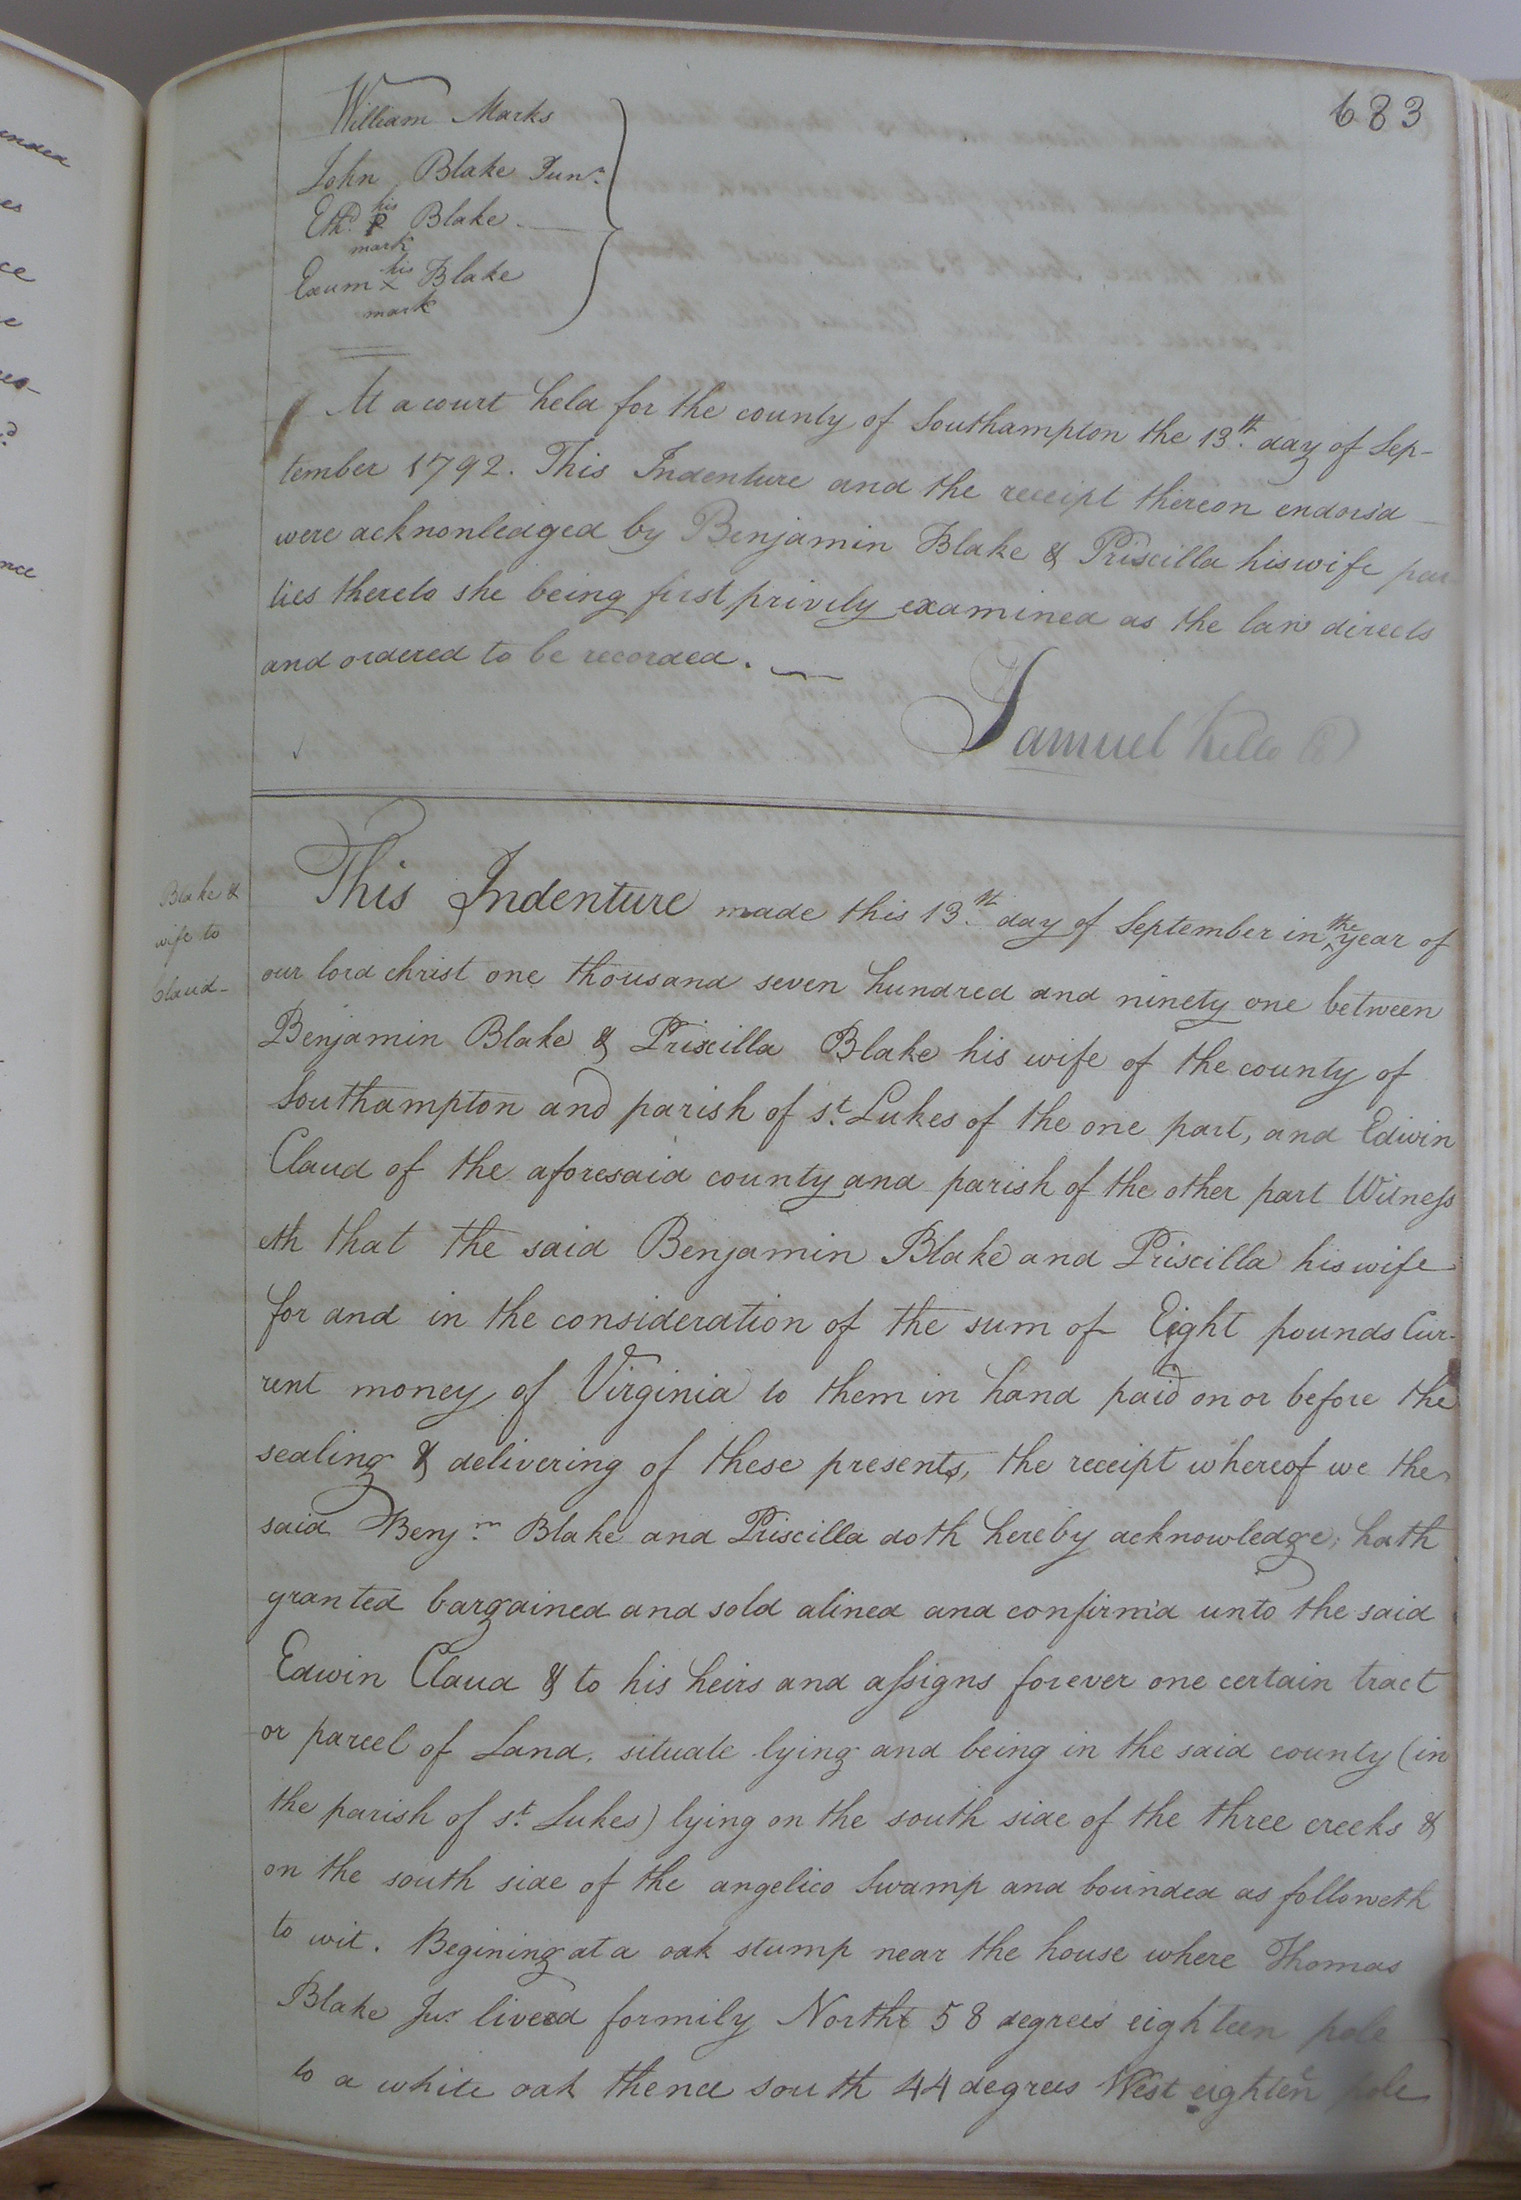 683
William Marks
John Blake Junr.
Ethd. his R Blake
mark
Exum his x Blake
mark
At a court held for the county of Southampton the 13th. day of Sep-
tember 1792. This Indenture and the receipt thereon endors'd
were acknonledged by Benjamin Blake & Priscilla his wife par
ties thereto she being first privily examined as the law directs
and ordered to be recorded.
Samuel Kello
Blake &
wife to
Claud-
This Indenture made this 13th. day of September in the year of
our lord christ one thousand seven hundred and ninety one between
Benjamin Blake & Priscilla Blake his wife of the county of
Southampton and parish of st. Lukes of the one part, and Edwin
Claud of the aforesaid county and parish of the other part Witness
eth that the said Benjamin Blake and Priscilla his wife
for and in the consideration of the sum of Eight pounds Cur-
rent money of Virginia to them in hand paid on or before the
sealing & delivering of these presents, the receipt whereof we the
said Benjm. Blake and Priscilla doth hereby acknowledge, hath
granted bargained and sold alined and confirm'd unto the said
Edwin Claud & to his heirs and assigns forever one certain tract
or parcel of Land, situate lying and being in the said county (in
the parish of st. Lukes) lying on the south side of the three creeks &
on the south side of the angelico Swamp and bounded as followeth
to wit. Begining at a oak stump near the house where Thomas
Blake Jur. lived formily North 58 degrees eighteen pole
to a white oak thence south 44 degrees West eighteen pole